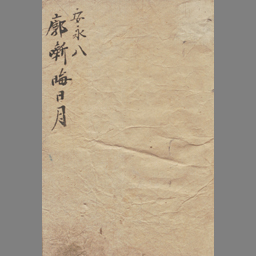 安永八
廓噺晦日月